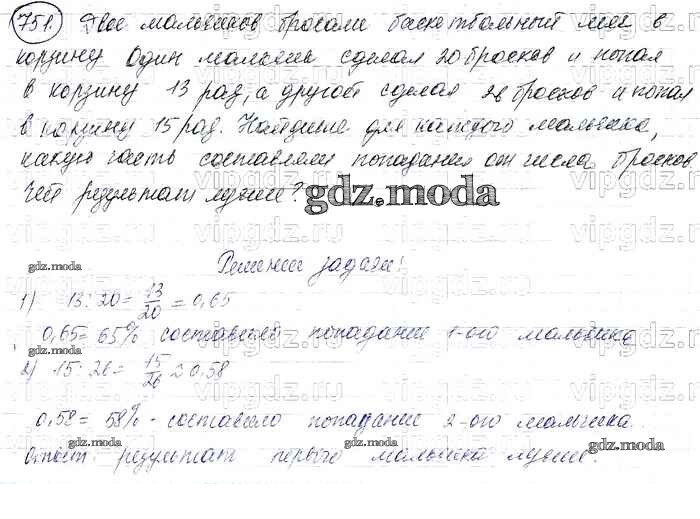 751. Двое мальчиков бросали баскетбольный мяч в
корзину. Один мальчик сделал 20 бросков и попал
в корзину 13 раз, а другой сделал 26 бросков и попал
в корзину 15 раз. Найдите для каждого мальчика,
какую часть составляли попадания от числа бросков
Чей результат лучше?
gdz.moda
Решение задачи!
1) 13 : 20 = 13/20 = 0,65
0,65 = 65% составляло попадание 1-ого мальчика
2) 15 : 26 = 15/26 ≈ 0,58
0,58 = 58% - составляло попадание 2-ого мальчика.
Ответ: результат первого мальчика лучше.
gdz.moda
gdz.moda
gdz.moda
gdz.moda
vipgdz.ru